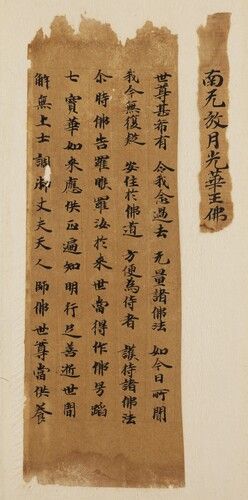 南无放月光華王佛
世尊甚希有 令我念過去 无量諸佛法 如今日所聞
我今無復疑 安住於佛道 方便為侍者 護持諸佛法
尒時佛告羅睺羅汝於來世當得作佛号蹈
七寶華如來應供正遍知明行足善逝世間
解無上士調御丈夫天人師佛世尊當供養